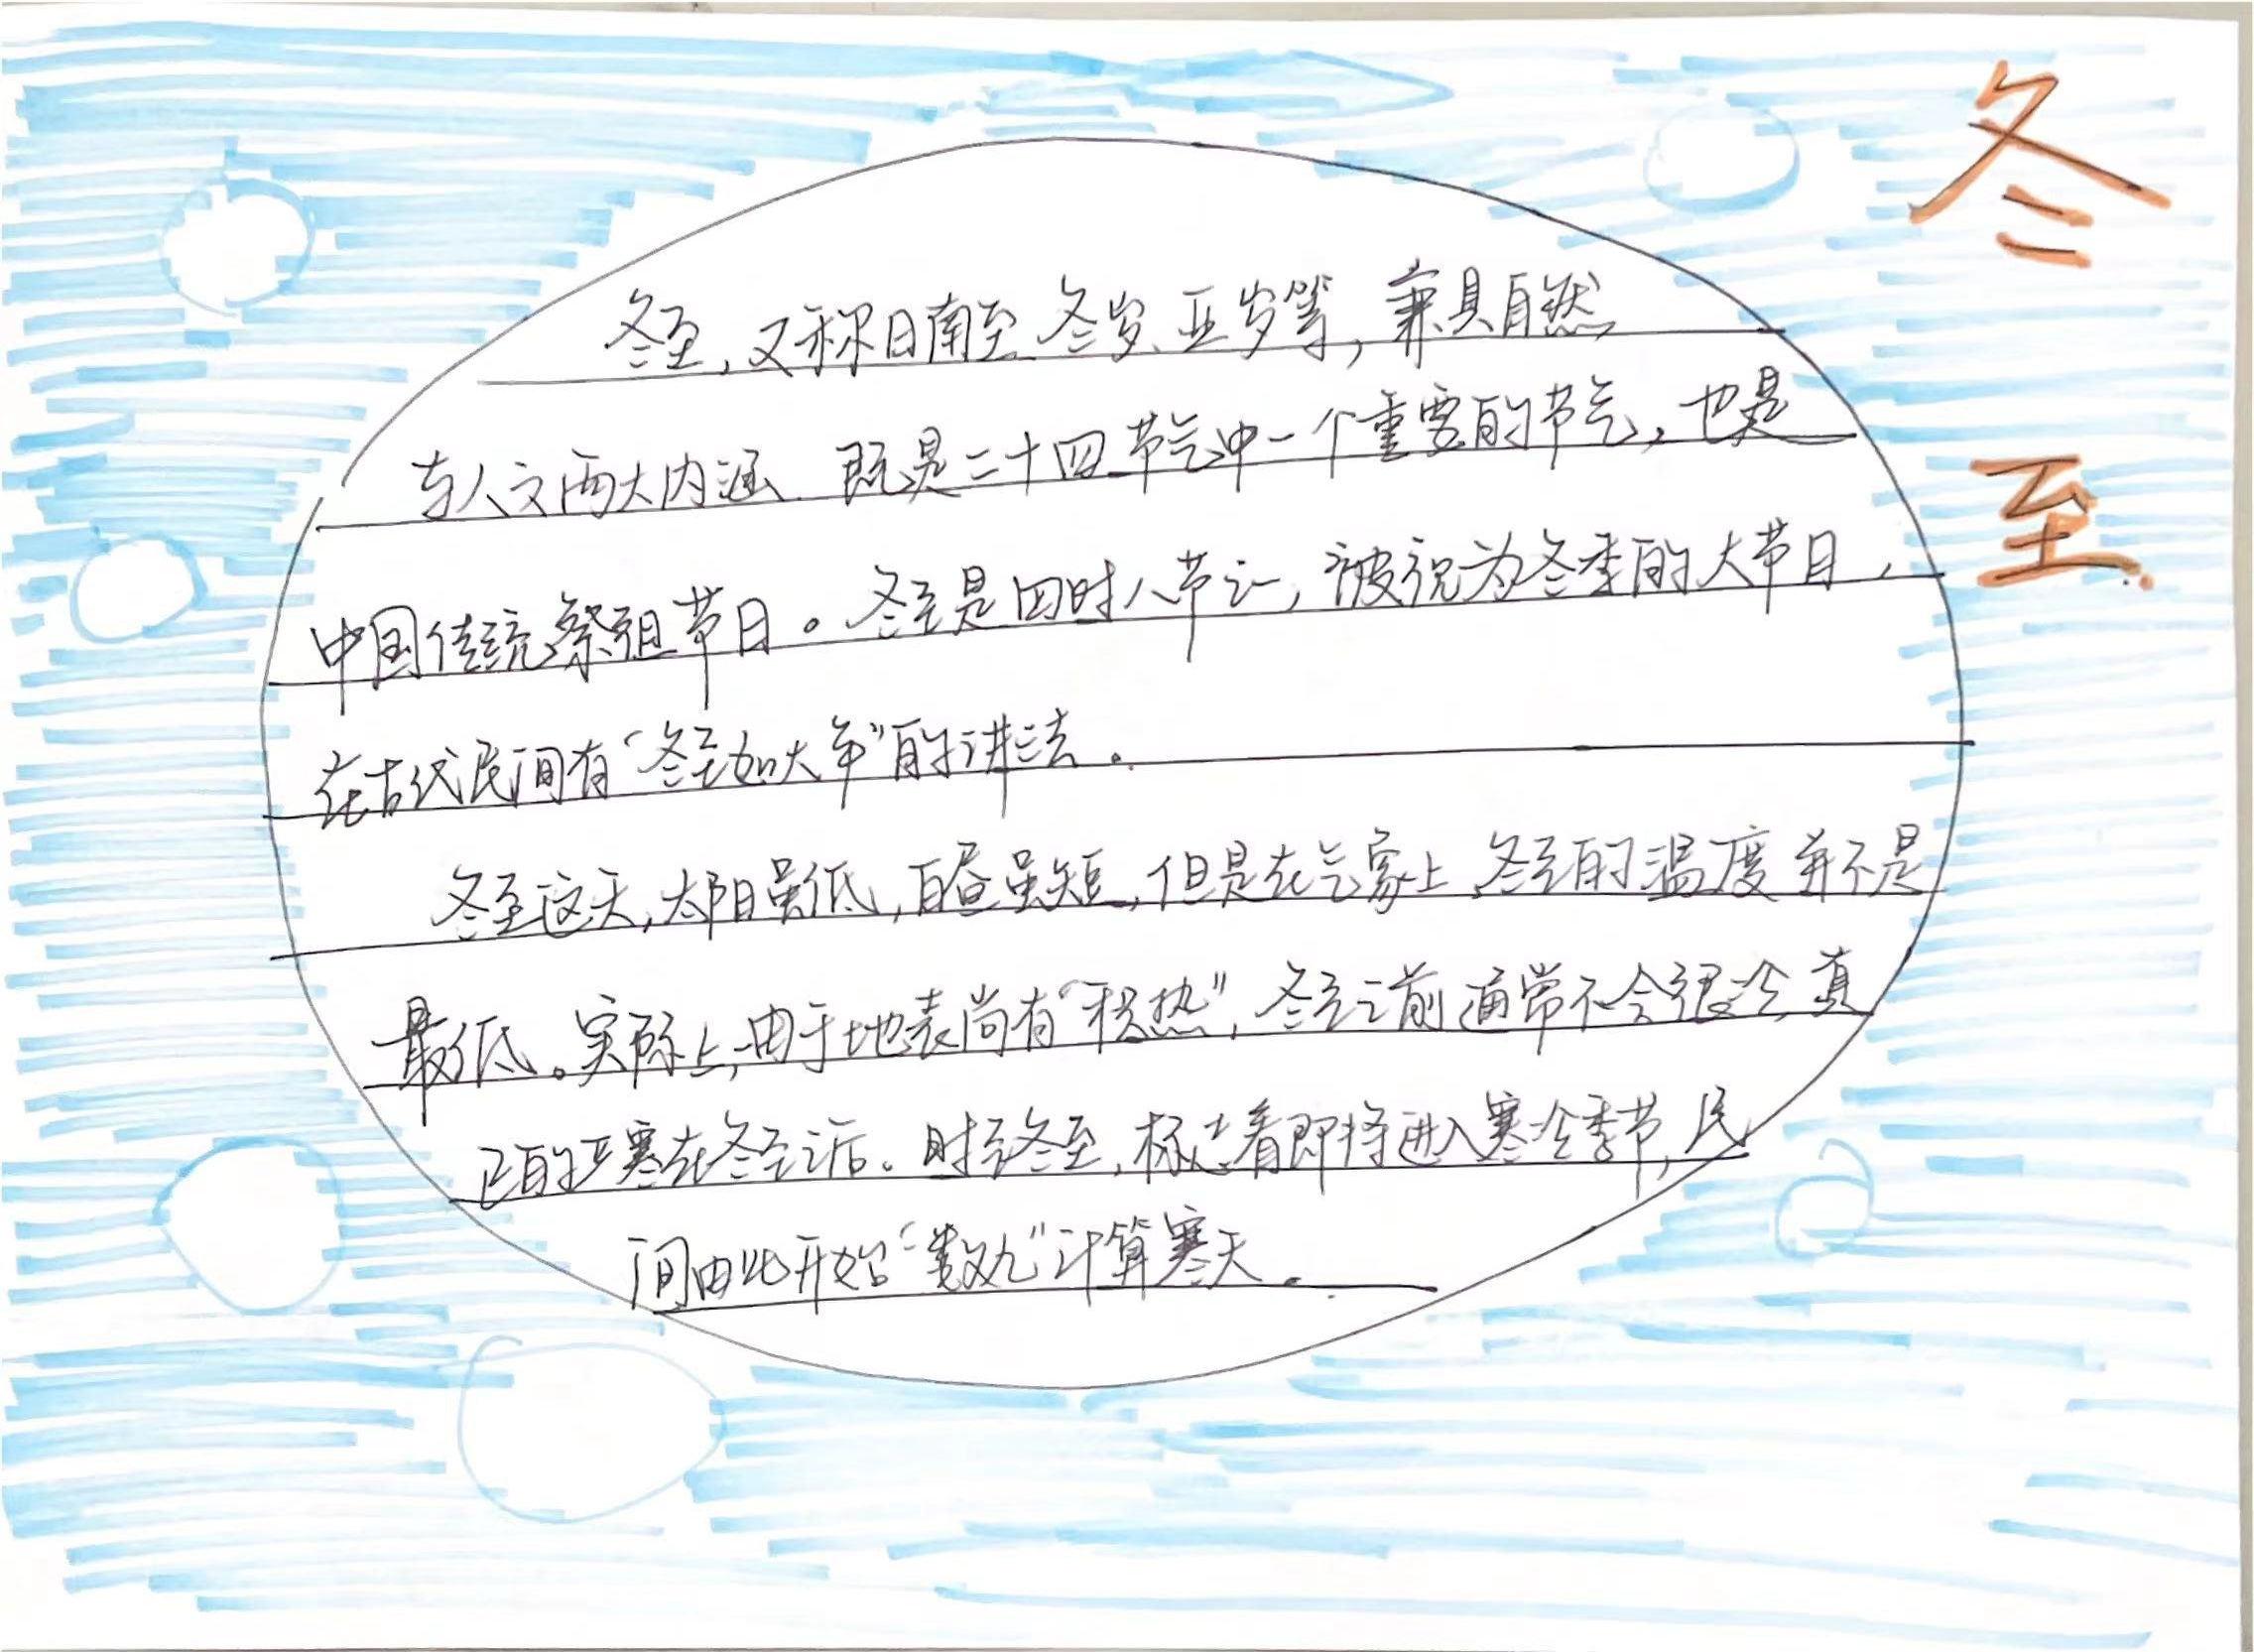 冬至
冬至,又称日南至、冬岁、亚岁等,兼具自然
与人文两大内涵、既是二十四节气中一个重要的节气,也是
中国传统祭祖节日。冬至是四时八节之一,被视为冬季的大节日,
在古代民间有“冬至如大年”的讲法。
冬至这天,太阳虽低,白昼虽短,但是在气象上,冬至的温度并不是
最低。实际上,由于地表尚有“积热”,冬至之前通常不会很冷,真
正的严寒在冬至之后。时至冬至,标志着即将进入寒冷季节,民
间由此开始“数九”计算寒天。